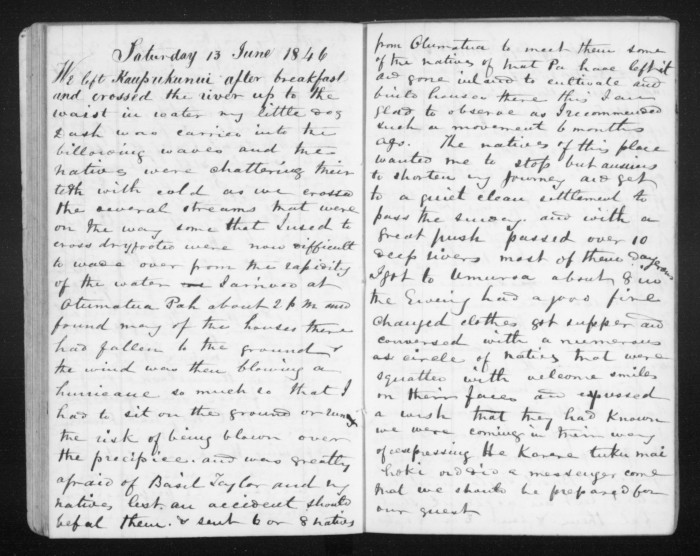 Saturday 13 June 1846
We left Kaupukunui after breakfast
and crossed the river up to the
waist in water my little dog
Dash was carried into the
billowing waves and the
natives were chattering their
teth with cold as we crossed
the several streams that were
on the way some that I used to
cross dryfooted were now difficult
to wade over from the rapidity
of the water I arrived at
Otumatua Pah about 2 p m and
found many of the houses there
had fallen to the ground &
the wind was then blowing a
hurricane so much so that I
had to sit on the ground or run
the risk of being blown over
the precipice. and was greatly
afraid of Basil Taylor and my
natives lest an accident should
befal them. & sent 6 or 8 natives
from Otumatua to meet them some
of the natives of that Pa have left it
and gone inland to cultivate and
build houses there this I am
glad to observe as I recommended
such a movement 6 months
ago. The natives of this place
wanted me to stop but anxious
to shorten my journey and get
to a quiet clean settlement to
pass the sunday. and with a
great push passed over 10
deep rivers most of them dangerous
I got to Umuroa about 8 in
the Evening had a good fire
changed clothes got supper and
conversed with a numerous
as circle of natives that were
squatted with welcome smiles
on their faces and expressed
a wish that they had known
we were coming in their way
of expressing He Karere tuku mai
hoki oddid a messenger come
that we should be prepared for
our guest